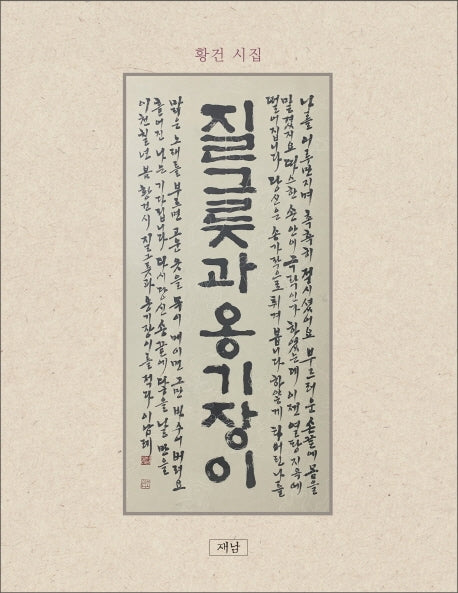 황건 시집
나를 어루만지며 촉촉히 적시셨어요 부드러운 손끝에 몸을
맡겼지요 따스한 손 안이 극락인가 하였는데 이젠 열탕지옥에
떨어집니다 당신은 손가락으로 튀겨 봅니다 하얗게 나를
질그릇과 옹기장이
맑은 노래를 부르면 고운 옷을 목이 메이면 그만 버려요
흩어진 나는 기다립니다 다시 당신 손끝에 닿을 날 만을
이천칠년 봄 황건 시 질그릇과 옹기장이를 적다
재남